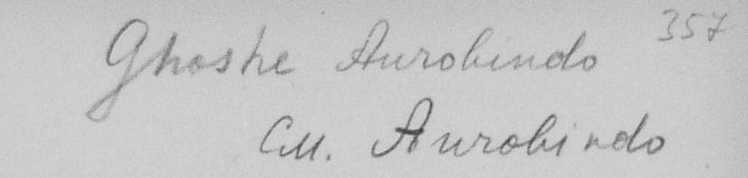 Ghoshe Aurobindo 357
См. Aurobindo